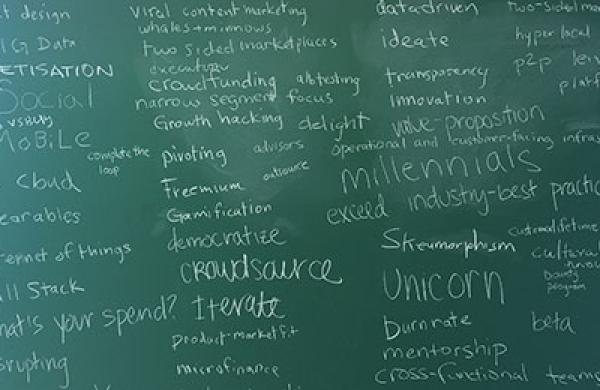 t design
IG Data
ETISATION
Social
vs BUY
MOBiLe
complete the
loop
cloud
earables
ernet of things
ll Stack
hat's your spend?
srupting
viral content marketing
whales + minnows
two sided marketplaces
execution
crowdfunding a/b testing
narrow segment focus
Growth hacking delight
pivoting advisors
Freemium outsource
Gamification
democratize
crowdsource
Iterate
product-market fit
microfinance
data driven
ideate
transparency
innovation
value-proposition
operational and customer-facing infras
millennials
exceed industry-best practic
Skeumorphism
Unicorn
Burnrate
mentorship
cross-functional teams
two-sided mar
hyper local
p2p len
platf
customer lifetime
cultural
Bounty
program
beta